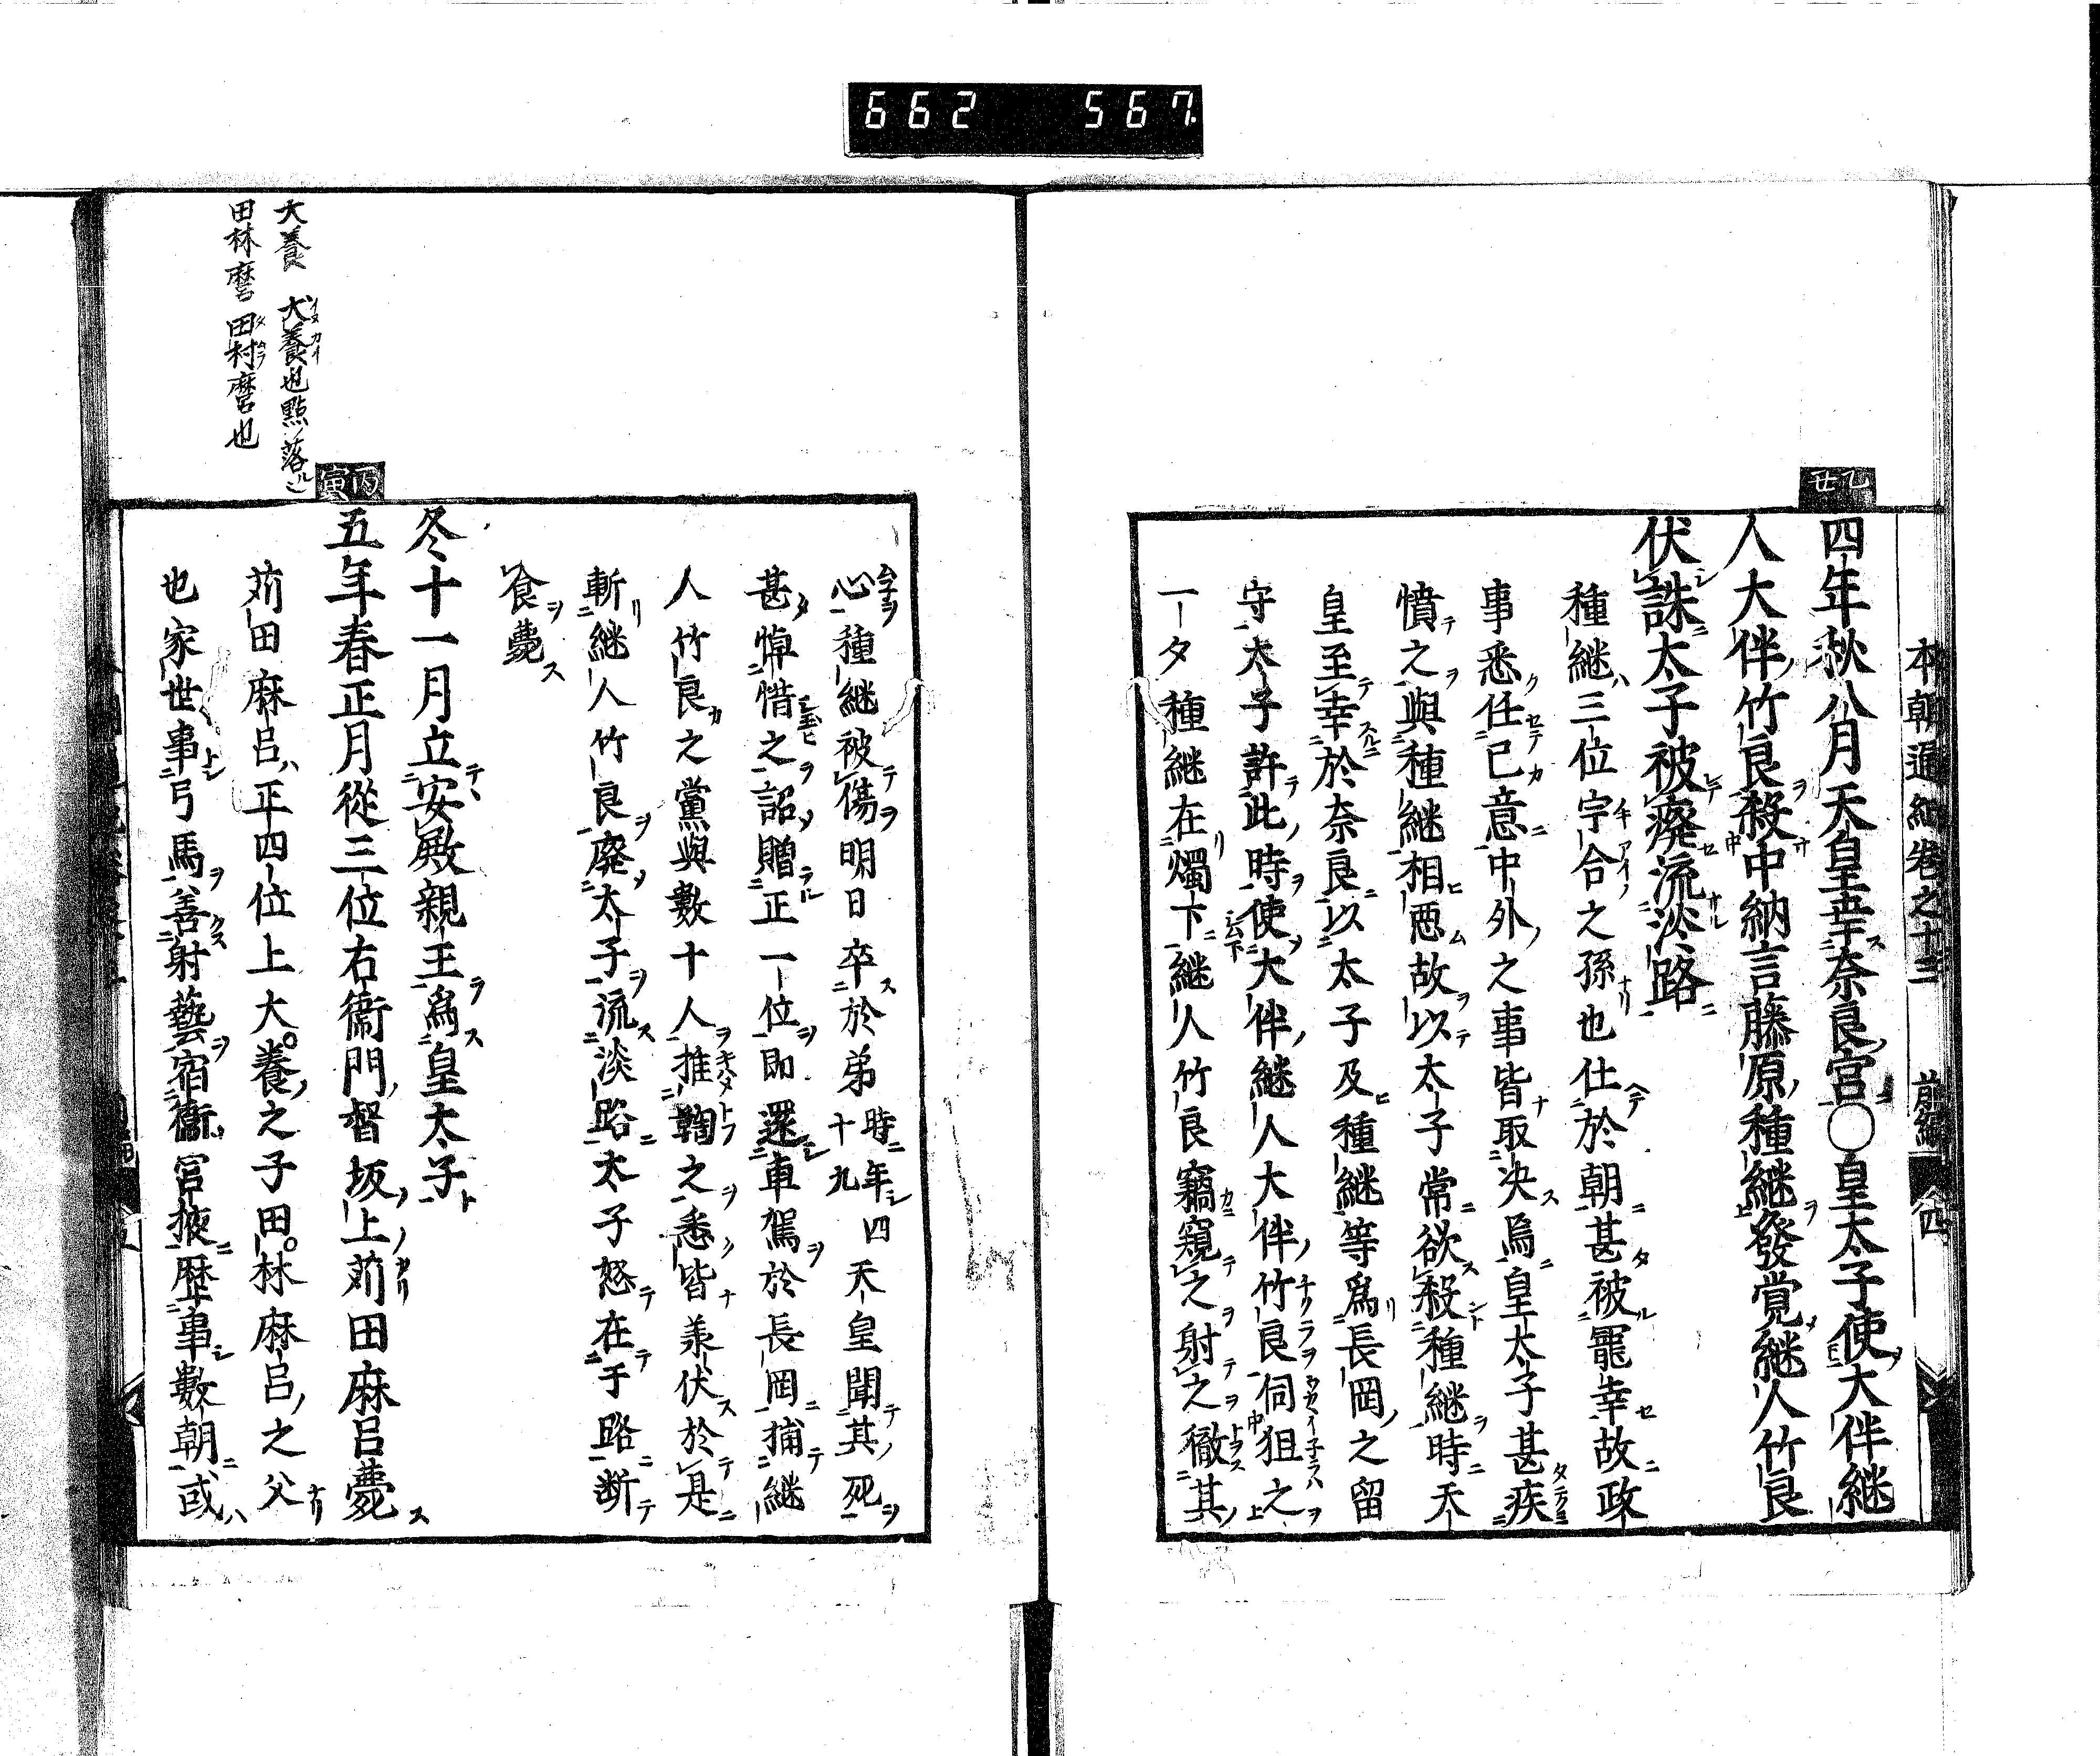 662 567
本朝通紀卷之十三 前編 四
乙丑
四年秋八月天皇幸奈良宮○皇太子使大伴継
人大伴竹良殺中納言藤原種継發覚継人竹良
伏誅太子被癈流淡路
種継三位宇合之孫也仕於朝甚被寵幸故政
事悉任己意中外之事皆取决焉皇太子甚疾
憤之與種継相惡故以太子常欲殺種継時天
皇至幸於奈良以太子及種継等爲長岡之留
守太子許此時使大伴継人大伴竹良伺狙之
一夕種継在燭下継人竹良竊窺之射之徹其
心種継被傷明日卒於弟時年四十九天皇聞其死
甚悼惜之詔贈正一位即還車駕於長岡捕継
人竹良之黨與數十人推鞫之悉皆兼伏於是
斬継人竹良廃太子流淡路太子怒在于路断
食薨
冬十一月立安殿親王爲皇太子
丙寅
五年春正月從三位右衞門督坂上苅田麻呂薨
苅田麻呂正四位上大養之子田林麻呂之父
也家世事弓馬善射藝宿衞宮掖歴事數朝或
大養 犬養也點落ル
田林麿 田村麿也